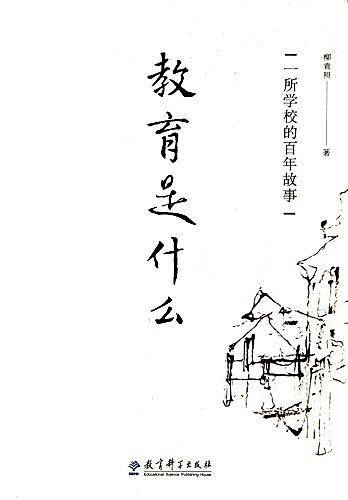 教育是什么
一所学校的百年故事
柳袁照 著
教育科学出版社
Educational Science Publishing House